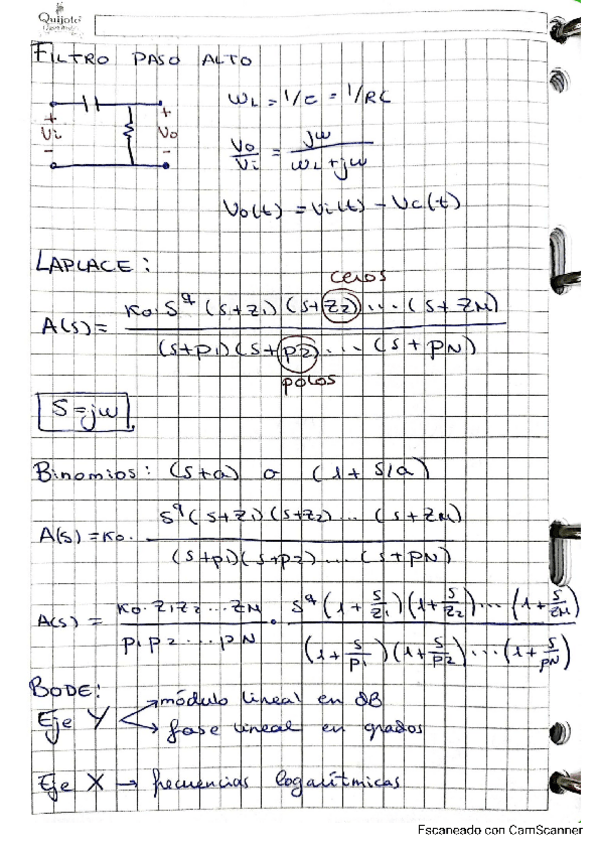 Quijote
FILTRO PASO ALTO
ωL = 1/τ = 1/RC
+ +
Vi Vo
- -
Vo/Vi = jω/(ωL+jω)
Vo(t) = Vi(t) - Vc(t)
LAPLACE:
ceros
A(s) = Ko·S^q (s+z1) (s+z2) ... (s+zM) / (s+p1)(s+p2) ... (s+pN)
polos
S=jω
Binomios: (s+a) o (1+s/a)
A(s) = Ko· S^q (s+z1)(s+z2) ... (s+zM) / (s+p1)(s+p2) ... (s+pN)
A(s) = Ko·z1z2...zM / p1p2...pN · S^q (1+s/z1)(1+s/z2)...(1+s/zM) / (1+s/p1)(1+s/p2)...(1+s/pN)
BODE:
Eje Y → módulo lineal en dB
→ fase lineal en grados
Eje X → frecuencias logarítmicas
Escaneado con CamScanner